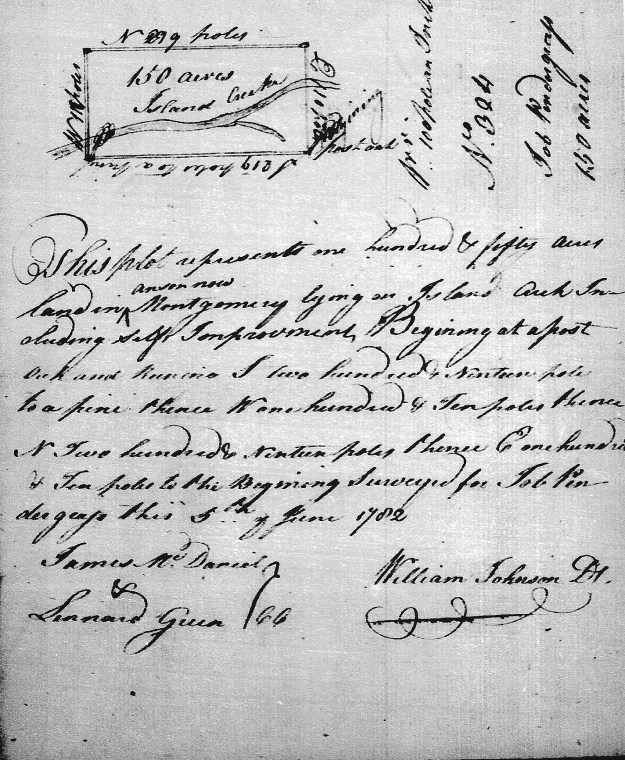 N 219 poles
150 acres
Island Creek
W 110 poles
E 110 poles
Begining
post oak
S 219 poles to a pine
pr. Inch
No. 324
Job Pendergrass
150 acres
This plot represents one hundred & fifty acres
anson now
land in Montgomery lying on Island Creek In-
cluding Self Improvment, Begining at a post
Oak and Runing S two hundred & Ninteen pole
to a pine thence W one hundred & Ten poles thence
N Two hundred & Ninteen poles thence E one hundred
& Ten poles to the Begining Surveyed for Job Pen-
dergrass this 5th of June 1782
James McDaniel
&
Lennard Green
CC
William Johnson DS.